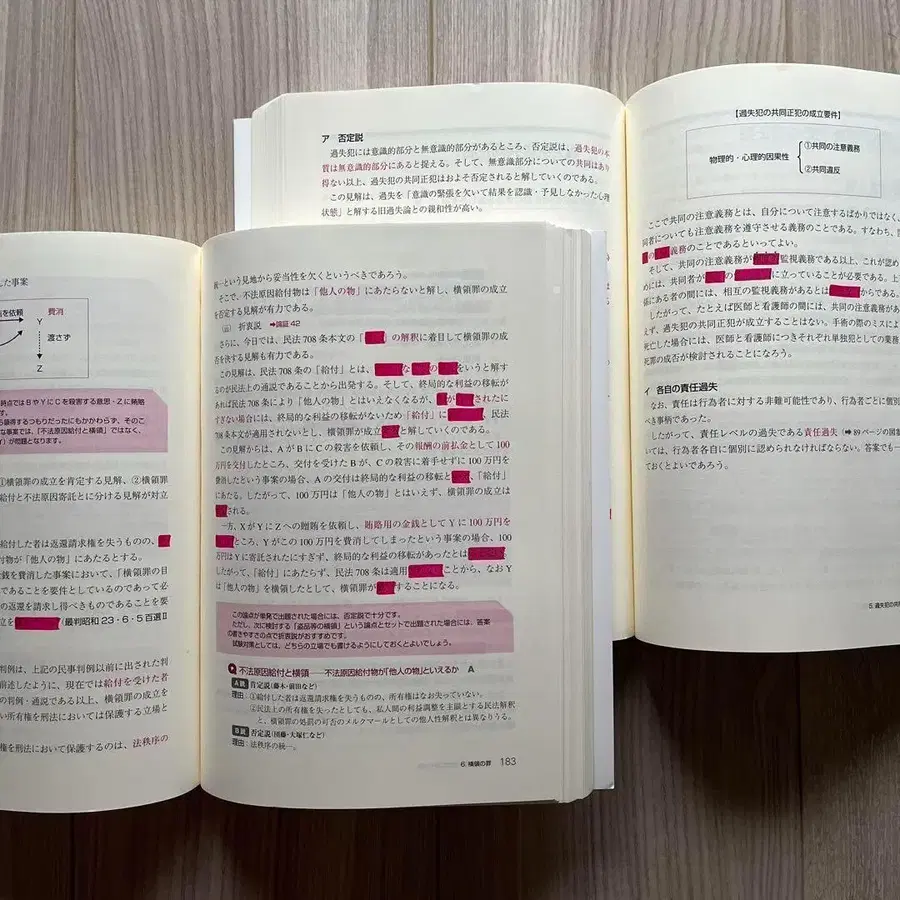 ア 否定説
過失犯には意識的部分と無意識的部分があるところ、否定説は、過失犯の本
質は無意識的部分にあると捉える。そして、無意識部分についての共同はあり
得ない以上、過失犯の共同正犯はおよそ否定されると解していくのである。
この見解は、過失を「意識の緊張を欠いて結果を認識・予見しなかった心理
状態」と解する旧過失論との親和性が高い。
【過失犯の共同正犯の成立要件】
物理的・心理的因果性
①共同の注意義務
②共同違反
ここで共同の注意義務とは、自分について注意するばかりではなく、
同者についても注意義務を遵守させる義務のことである。すなわち、
の 義務のことであるといってよい。
そして、共同の注意義務が 監視義務である以上、これが認め
めには、共同者が の に立っていることが必要である。上
係にある者の間には、相互の監視義務があるとは からである。
したがって、たとえば医師と看護師の間には、共同の注意義務があ
えず、過失犯の共同正犯が成立することはない。手術の際のミスによ
死亡した場合には、医師と看護師につきそれぞれ単独犯としての業務
死罪の成否が検討されることになろう。
イ 各自の責任過失
なお、責任は行為者に対する非難可能性であり、行為者ごとに個別
べき事柄であった。
したがって、責任レベルの過失である責任過失（➡89ページの図
いては、行為者各自に個別に認められなければならない。答案でも一
ておくとよいであろう。
5. 過失犯の共
した事案
を依頼
費消
Y
渡さず
Z
時点ではBやYにCを殺害する意思・Zに賄賂
す。
ら領得するつもりだったにもかかわらず、そのこ
な事案では、「不法原因給付と横領」ではなく、
が問題となります。
①横領罪の成立を肯定する見解、②横領罪
給付と不法原因寄託とに分ける見解が対立
給付した者は返還請求権を失うものの、
付物が「他人の物」にあたるとする。
金銭を費消した事案において、「横領罪の目
であることを要件としているのであって必
の返還を請求し得べきものであることを要
立を （最判昭和23・6・5百選Ⅱ
判例は、上記の民事判例以前に出された判
前述したように、現在では給付を受けた者
の判例・通説である以上、横領罪の成立を
い所有権を刑法においては保護する立場と
権を刑法において保護するのは、法秩序の
統一という見地から妥当性を欠くというべきであろう。
そこで、不法原因給付物は「他人の物」にあたらないと解し、横領罪の成立
を否定する見解が有力である。
(ⅲ) 折衷説 ➡論証42
さらに、今日では、民法708条本文の「 」の解釈に着目して横領罪の成
否を決する見解も有力である。
この見解は、民法708条の「給付」とは、 な の をいうと解す
るのが民法上の通説であることから出発する。そして、終局的な利益の移転が
あれば民法708条により「他人の物」とはいえなくなるが、 が されたに
すぎない場合には、終局的な利益の移転がないため「給付」に 、民法
708条本文が適用されないとし、横領罪が成立 と解していくのである。
この見解からは、AがBにCの殺害を依頼し、その報酬の前払金として100
万円を交付したところ、交付を受けたBが、Cの殺害に着手せずに100万円を
費消したという事案の場合、Aの交付は終局的な利益の移転と 、「給付」
にあたる。したがって、100万円は「他人の物」とはいえず、横領罪の成立は
される。
一方、XがYにZへの贈賄を依頼し、賄賂用の金銭としてYに100万円を
ところ、Yがこの100万円を費消してしまったという事案の場合、100
万円はYに寄託されたにすぎず、終局的な利益の移転があったとは
したがって、「給付」にあたらず、民法708条は適用 ことから、なおY
は「他人の物」を横領したとして、横領罪が することになる。
この論点が単発で出題された場合には、否定説で十分です。
ただし、次に検討する「盗品等の横領」という論点とセットで出題された場合には、答案
の書きやすさの点で折衷説がおすすめです。
試験対策としては、どちらの立場でも書けるようにしておくとよいでしょう。
Q 不法原因給付と横領——不法原因給付物が「他人の物」といえるか A
A説 肯定説（藤木・前田など）
理由：①給付した者は返還請求権を失うものの、所有権はなお失っていない。
②民法上の所有権を失ったとしても、私人間の利益調整を主眼とする民法解釈
と、横領罪の処罰の可否のメルクマールとしての他人性解釈とは異なりうる。
B説 否定説（団藤・大塚仁など）
理由：法秩序の統一。
6. 横領の罪 183